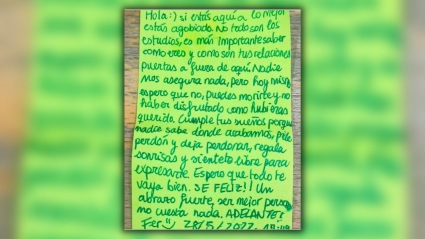 Hola :) si estás aquí a lo mejor
estás agobiado. No todo son los
estudios, es más importante saber
como eres y como son tus relaciones
puertas a fuera de aquí. Nadie
nos asegura nada, pero hoy mismo
espero que no, puedes morirte y no
haber disfrutado como hubieras
querido. Cumple tus sueños porque
nadie sabe dónde acabamos, pide
perdón y deja perdonar, regala
sonrisas y siéntete libre para
expresarte. Espero que todo te
vaya bien. SE FELIZ!!! Un
abrazo fuerte, ser mejor persona
no cuesta nada. ADELANTE!
Fer :) 28/5/2022